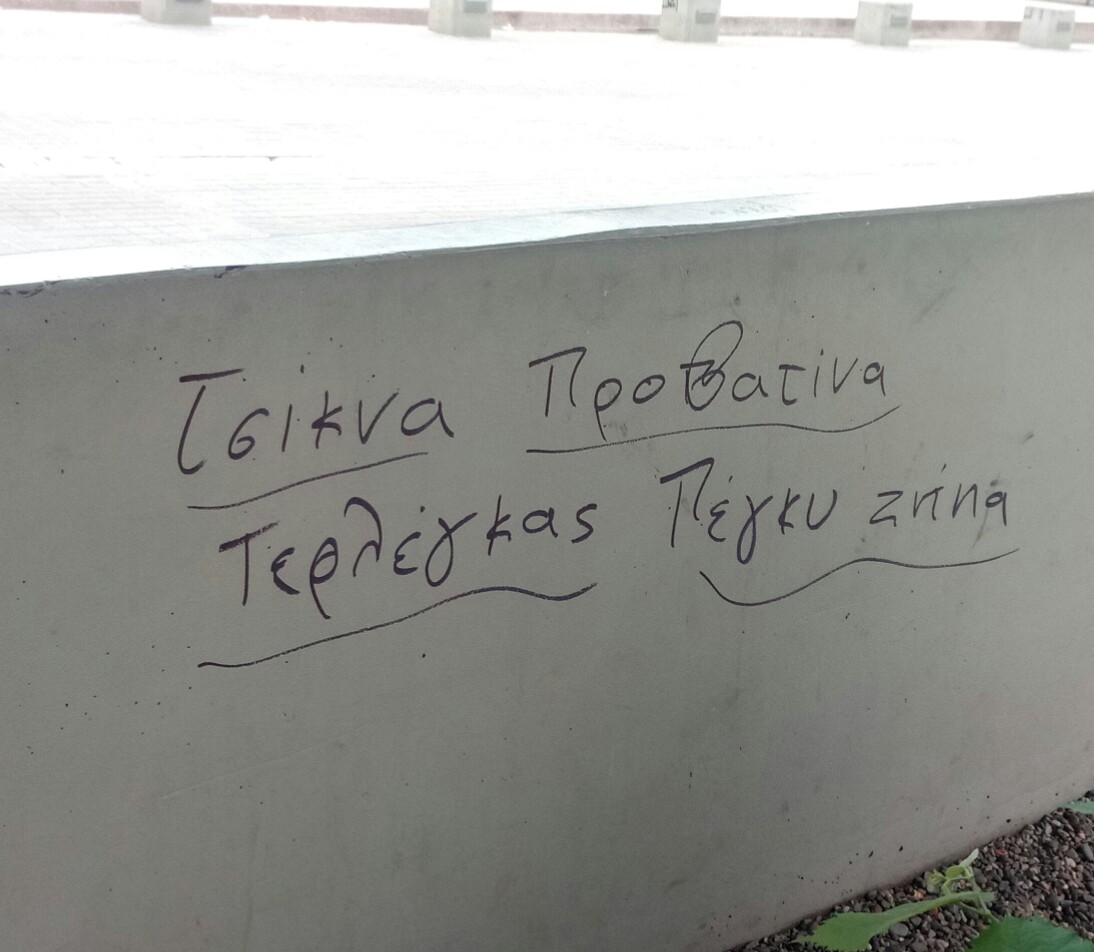 Τσίκνα Προβατίνα
Τερλέγκας Πέγκυ Ζήνα